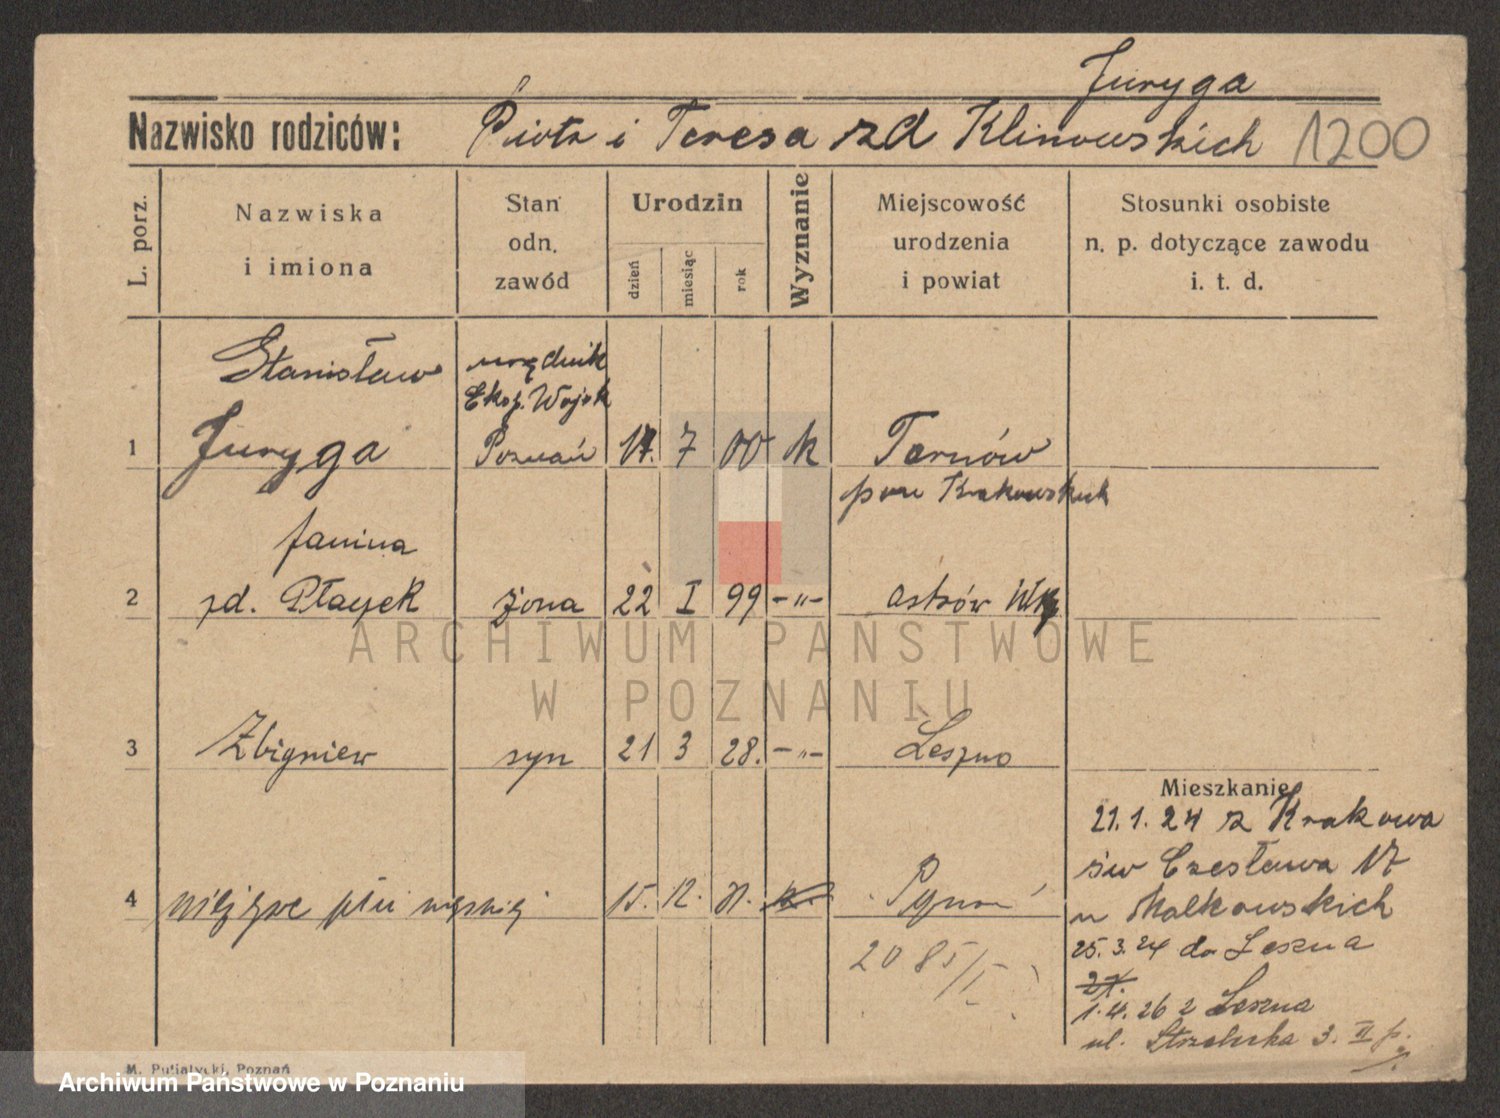 Juryga
Nazwisko rodziców: Piotr i Teresa zd Klinowskich 1200
L. porz.
Nazwiska
i imiona
Stan
odn.
zawód
Urodzin
dzień
miesiąc
rok
Wyznanie
Miejscowość
urodzenia
i powiat
Stosunki osobiste
n. p. dotyczące zawodu
i. t. d.
Stanisław urzędnik
Eksp. Wojsk
1 Juryga Poznań 17. 7 00 k Tarnów
pow Krakowskich
Janina
2 zd. Ptaszek żona 22 I 99 -"- Ostrów Wlkp
ARCHIWUM PAŃSTWOWE
W POZNANIU
3 Zbigniew syn 21 3 28. -"- Leszno
Mieszkanie
21.1.24 z Krakowa
św Czesława 17
u Małkowskich
4 nieżywe płci męskiej 15. 12. 31. k. Poznań
25.3.24 do Leszna
2085/I
27.
1.4.26 z Leszna
ul. Strzelecka 3. II p.
M. Putiatycki, Poznań
Archiwum Państwowe w Poznaniu